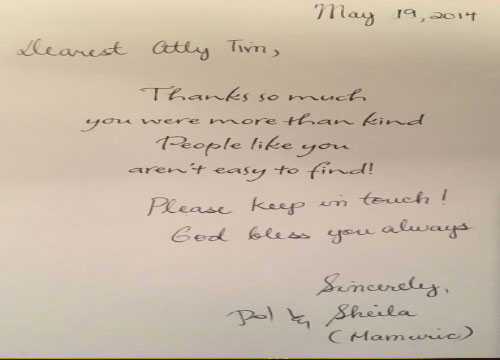 May 19, 2014
Dearest Atty Tim,
Thanks so much
you were more than kind
People like you
aren't easy to find!
Please keep in touch!
God bless you always
Sincerely,
Pol & Sheila
(Mamuric)